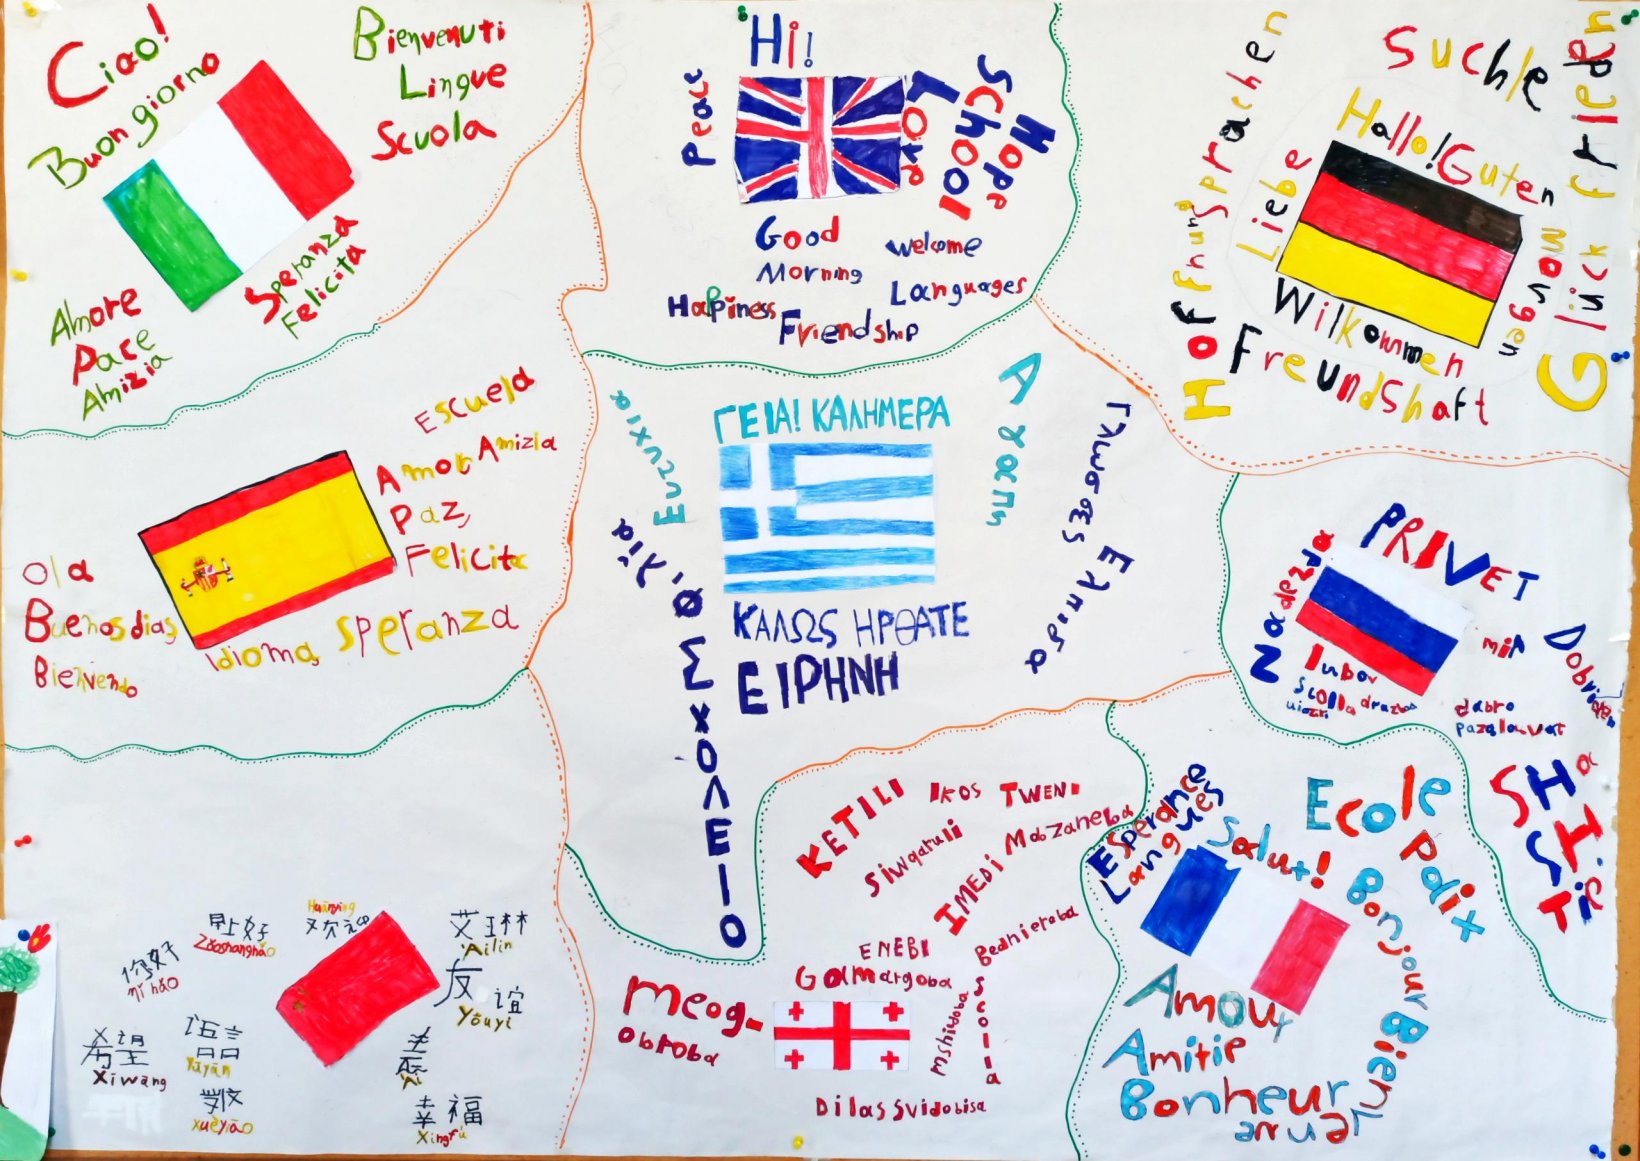 Ciao!
Buongiorno
Bienvenuti
Lingue
Scuola
Speranza
Felicita
Amore
Pace
Amizia
Hi!
Peace
Love
School
Hope
Good
Morning
Welcome
Languages
Happiness
Friendship
Suchle
Frieden
Glück
Hallo! Guten
Morgen
Liebe
Hoffnung
Sprachen
Wilkommen
Freundshaft
Escuela
Amor
Amizia
Paz,
Felicita
Ola
Buenos dias
Bienvendo
Idioma,
Speranza
ΓΕΙΑ! ΚΑΛΗΜΕΡΑ
Ευτυχια
Φιλία
ΣΧΟΛΕΙΟ
Αγαπη
Γλωσσες
Ελπιδα
ΚΑΛΩΣ ΗΡΘΑΤΕ
ΕΙΡΗΝΗ
PRIVET
Nadezda
mir
Dobriden
lubov
dabro
pazalouvat
SHaSTiT
你好
nǐ hǎo
早上好
Zǎoshanghǎo
欢迎
Huānyíng
Ailin
友谊
Yǒuyì
希望
Xiwang
语言
Yǔyán
xuéyiǎo
Ài
幸福
Xìngfú
KETILI
IKOS
TWENI
Siwqaruli
IMEDI
Mobzaneba
Bednieroba
ENEBI
Gamargoba
Meog-
obroba
Mshvidoba
Scolla
Dilas Svidobisa
Esperance
Langues
Salut!
Ecole
Paix
Bonjour
Bienvenue
Amour
Amitie
Bonheur